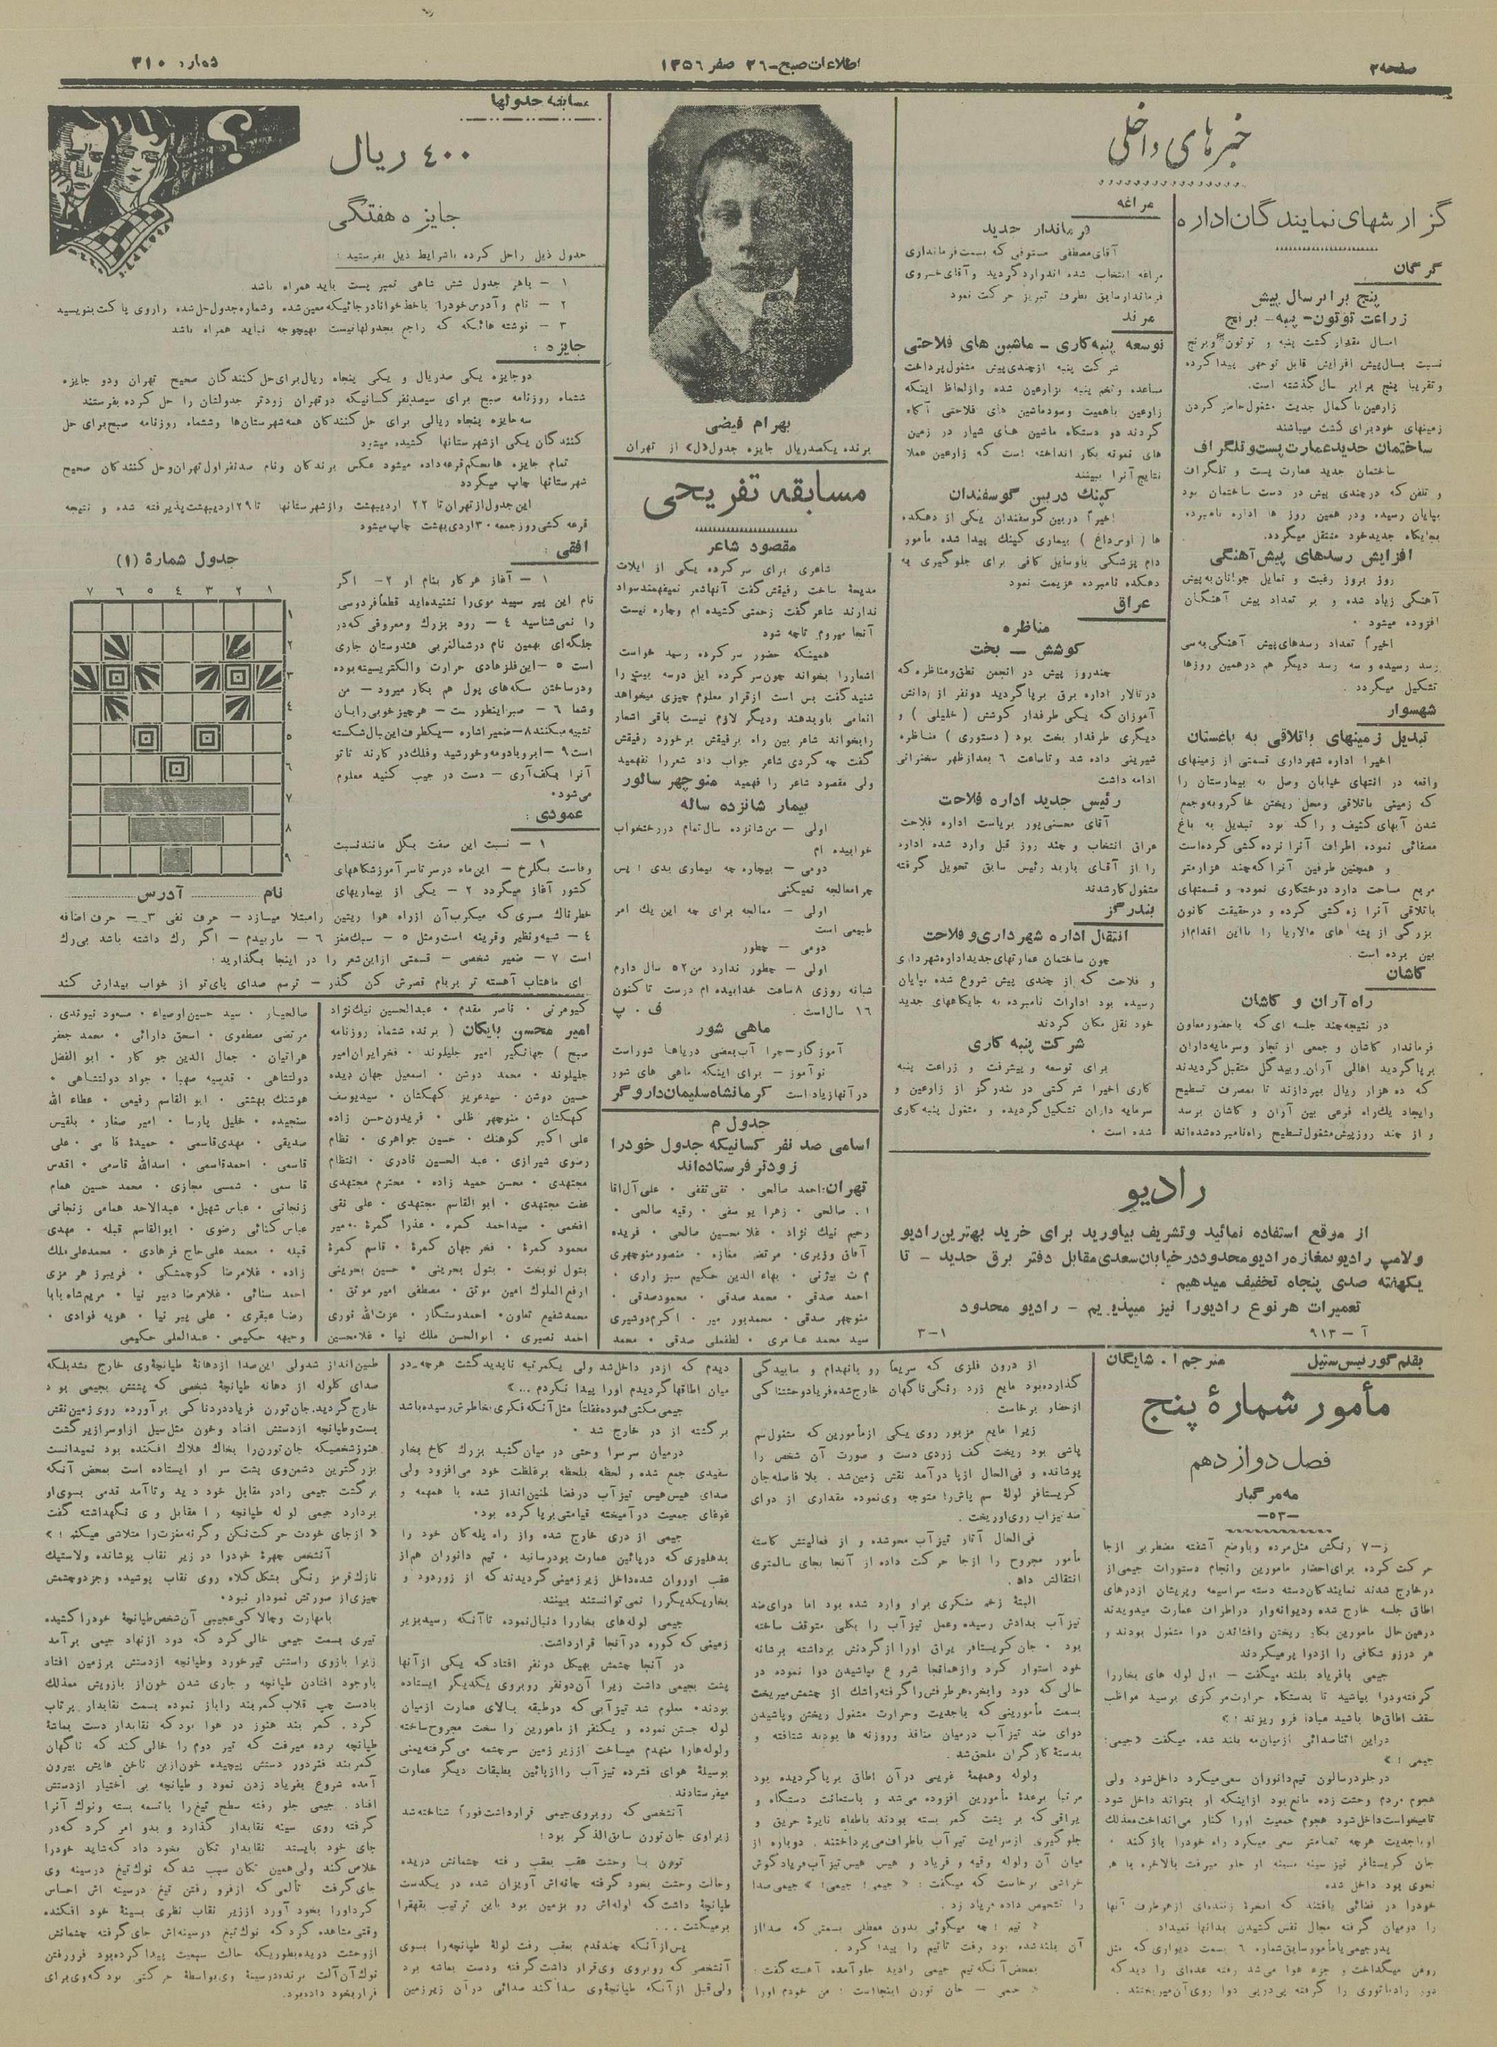 صفحه ۲
اطلاعات صبح - ۲۶ صفر ۱۳۵۶
شماره ۳۱۰
خبرهای داخلی
گزارشهای نمایندگان اداره
گرگان
پنج برابر سال پیش
زراعت توتون - پنبه - برنج
امسال مقدار کشت پنبه و توتون و برنج
نسبت بسال پیش افزایش قابل توجهی پیدا کرده
و تقریبا پنج برابر سال گذشته است.
زارعین با کمال جدیت مشغول حاضر کردن
زمینهای خود برای کشت میباشند
ساختمان جدید عمارت پست و تلگراف
ساختمان جدید عمارت پست و تلگراف
و تلفن که در چندی پیش در دست ساختمان بود
بپایان رسیده و در همین روز ها اداره نامبرده
بجایگاه جدید خود منتقل میگردد.
افزایش رسدهای پیش آهنگی
روز بروز رغبت و تمایل جوانان به پیش
آهنگی زیاد شده و بر تعداد پیش آهنگان
افزوده میشود .
اخیراً تعداد رسدهای پیش آهنگی به سی
رسد رسیده و سه رسد دیگر هم در همین روزها
تشکیل میگردد .
شهسوار
تبدیل زمینهای باتلاقی به باغستان
اخیرا اداره شهرداری قسمتی از زمینهای
واقعه در انتهای خیابان وصل به بیمارستان را
که زمینی باتلاقی ومحل ریختن خاکروبه وجمع
شدن آبهای کثیف و راکد بود تبدیل به باغ
مصفائی نموده اطراف آنرا نرده کشی کرده است
و همچنین طرفین آنرا که چند هزار متر
مربع مساحت دارد درختکاری نموده و قسمتهای
باتلاقی آنرا زه کشی کرده و در حقیقت کانون
بزرگی از پشه های مالاریا را با این اقدام از
بین برده است .
کاشان
راه آران و کاشان
در نتیجه چند جلسه ای که با حضور معاون
فرماندار کاشان و جمعی از تجار وسرمایه داران
برپا گردید اهالی آران و بیدگل متقبل گردیدند
که ده هزار ریال بپردازند تا بمصرف تسطیح
وایجاد یک راه فرعی بین آران و کاشان برسد
و از چند روز پیش مشغول تسطیح راه نامبرده شده اند
مراغه
فرماندار جدید
آقای مصطفی مستوفی که بسمت فرمانداری
مراغه انتخاب شده اند وارد گردید و آقای خسروی
فرماندار سابق بطرف تبریز حرکت نمود
مرند
توسعه پنبه کاری - ماشین های فلاحتی
شرکت پنبه از چندی پیش مشغول پرداخت
مساعده و تخم پنبه بزارعین شده و از لحاظ اینکه
زارعین باهمیت وسود ماشین های فلاحتی آگاه
گردند دو دستگاه ماشین های شیار در زمین
های نمونه بکار انداخته است که زارعین عملا
نتایج آنرا ببینند
کپنک در بین گوسفندان
اخیراً در بین گوسفندان یکی از دهکده
ها ( اوس داغ ) بیماری کپنک پیدا شده مأمور
دام پزشکی با وسایل کافی برای جلوگیری به
دهکده نامبرده عزیمت نمود
عراق
مناظره
کوشش - بخت
چند روز پیش در انجمن نطق و مناظره که
در تالار اداره برق برپا گردید دو نفر از دانش
آموزان که یکی طرفدار کوشش ( خلیلی ) و
دیگری طرفدار بخت بود ( دستوری ) مناظره
شیرینی داده شد و تا ساعت ٦ بعد از ظهر سخنرانی
ادامه داشت
رئیس جدید اداره فلاحت
آقای محسنی پور بریاست اداره فلاحت
عراق انتخاب و چند روز قبل وارد شده اداره
را از آقای باربد رئیس سابق تحویل گرفته
مشغول کار شدند
بندر گز
انتقال اداره شهرداری و فلاحت
چون ساختمان عمارتهای جدید اداره شهرداری
و فلاحت که از چندی پیش شروع شده بپایان
رسیده بود ادارات نامبرده به جایگاههای جدید
خود نقل مکان کردند
شرکت پنبه کاری
برای توسعه و پیشرفت و زراعت پنبه
کاری اخیرا شرکتی در بندر گز از زارعین و
سرمایه داران تشکیل گردیده و مشغول پنبه کاری
شده است .
رادیو
از موقع استفاده نمائید و تشریف بیاورید برای خرید بهترین رادیو
ولامپ رادیو بمغازه رادیو محدود در خیابان سعدی مقابل دفتر برق جدید - تا
یکهفته صدی پنجاه تخفیف میدهیم .
تعمیرات هر نوع رادیورا نیز میپذیریم - رادیو محدود
آ - ۹۱۳
۳-۱
بهرام فیضی
برنده یکصد ریال جایزه جدول «ل» از تهران
مسابقه تفریحی
مقصود شاعر
شاعری برای سرکرده یکی از ایلات
مدیحۀ ساخت رفیقش گفت آنها شعر نمیفهمند سواد
ندارند شاعر گفت زحمتی کشیده ام وچاره نیست
آنجا میروم تا چه شود
همینکه حضور سرکرده رسید خواست
اشعار را بخواند چون سرکرده ایل دو سه بیت را
شنید گفت بس است از قرار معلوم چیزی میخواهد
انعامی باو بدهند ودیگر لازم نیست باقی اشعار
را بخواند شاعر بین راه برفیقش برخورد رفیقش
گفت چه کردی شاعر جواب داد شعر را نفهمید
ولی مقصود شاعر را فهمید منوچهر سالور
بیمار شانزده ساله
اولی - من شانزده سال تمام در رختخواب
خوابیده ام
دومی - بیچاره چه بیماری بدی ! پس
چرا معالجه نمیکنی
اولی - معالجه برای چه این یک امر
طبیعی است
دومی - چطور
اولی - چطور ندارد من ۵۲ سال دارم
شبانه روزی ۸ ساعت خدابیده ام درست تا کنون
۱٦ سال است . ف . پ
ماهی شور
آموزگار - چرا آب بعضی دریاها شور است
نوآموز - برای اینکه ماهی های شور
در آنها زیاد است کرمانشاه سلیمان داروگر
جدول م
اسامی صد نفر کسانیکه جدول خود را
زودتر فرستاده اند
تهران : احمد صالحی . تقی تقفی . علی آل آقا
ا . صالحی . زهرا یوسفی . رقیه صالحی .
رحیم نیک نژاد . غلامحسین صالحی . فریده
آفاق وزیری . مرتضی مغازه . منصور منوچهری
م ت بیژنی . بهاء الدین حکیم سبزواری .
احمد صدقی . محمد صدقی . محمود صدقی .
منوچهر صدقی . محمد پور میر . اکرم دوشیری
سید محمد عامری . لطفعلی صدقی . محمد
مسابقه جدولها
٤٠٠ ریال
جایزه هفتگی
جدول ذیل را حل کرده با شرایط ذیل بفرستید :
۱ - با هر جدول شش شاهی تمبر پست باید همراه باشد
۲ - نام و آدرس خود را با خط خوانا در جائیکه معین شده و شماره جدول حل شده را روی پاکت بنویسید
۳ - نوشته هائیکه که راجع بجدولها نیست بهیچوجه نباید همراه باشد
جایزه :
دو جایزه یکی صد ریال و یکی پنجاه ریال برای حل کنندگان صحیح تهران و دو جایزه
ششماه روزنامه صبح برای سیصد نفر کسانیکه در تهران زودتر جدولشان را حل کرده بفرستند
سه جایزه پنجاه ریالی برای حل کنندگان همه شهرستان ها و ششماه روزنامه صبح برای حل
کنندگان یکی از شهرستانها کشیده میشود
تمام جایزه ها بحکم قرعه داده میشود عکس برندگان و نام صد نفر اول تهران و حل کنندگان صحیح
شهرستانها چاپ میگردد
این جدول از تهران تا ۲۲ اردیبهشت و از شهرستانها تا ۲۹ اردیبهشت پذیرفته شده و نتیجه
قرعه کشی روز جمعه ۳۰ اردیبهشت چاپ میشود
جدول شمارۀ (۱)
۱ ۲ ۳ ٤ ٥ ٦ ۷
۱
۲
۳
٤
٥
٦
۷
۸
۹
نام ............ آدرس ............
افقی :
۱ - آغاز هر کار بنام او ۲ - اگر
نام این پیر سپید موی را نشنیده اید قطعاً فردوسی
را نمی شناسید ٤ - رود بزرگ و معروفی که در
جلگه ای بهمین نام در شمال غربی هندوستان جاری
است ٥ - این فلز هادی حرارت والکتریسیته بوده
ودر ساختن سکه های پول هم بکار میرود - من
وشما ٦ - صبر اینطور ست - هرچیز خوبی را بان
تشبیه میکنند ۸ - ضمیر اشاره - یکطرف این بال شکسته
است ۹ - ابر و باد و مه و خورشید و فلک در کارند تا تو
آنرا بکف آری - دست در جیب کنید معلوم
می شود .
عمودی :
۱ - نسبت این صفت بگل مانند نسبت
وفاست بگلرخ - این ماه در سرتاسر آموزشگاههای
کشور آغاز میگردد ۲ - یکی از بیماریهای
خطرناک مسری که میکرب آن از راه هوا ریتین را مبتلا میسازد - حرف نفی ۳ - حرف اضافه
٤ - شبیه و نظیر و قرینه است ومثل ٥ - سبک مغز ٦ - مار بیدم - اگر رک داشته باشد بی رک
است ۷ - ضمیر شخصی - قسمتی از این شعر را در اینجا بگذارید :
ای ماهتاب آهسته تر بر بام قصرش کن گذر - ترسم صدای پای تو از خواب بیدارش کند
کیومرثی . ناصر مقدم . عبدالحسین نیک نژاد
امیر محسن بایگان ( برنده ششماه روزنامه
صبح ) جهانگیر امیر جلیلوند . فخر ایران امیر
جلیلوند . محمد دوشن . اسمعیل جهان دیده
حسین دوشن . سید عزیز کهکشان . سید یوسف
کهکشان . منوچهر ظلی . فریدون حسن زاده
علی اکبر کوهنک . حسین جواهری . نظام
رضوی شیرازی . عبد الحسین قادری . انتظام
مجتهدی . محسن حمید زاده . محترم مجتهدی
عفت مجتهدی . ابو القاسم مجتهدی . علی نقی
افخمی . سید احمد کمره . عذرا کمرۀ . میر
محمود کمرۀ . فخر جهان کمرۀ . قاسم کمرۀ
بتول نوبخت . بتول بحرینی . حسین بحرینی
ارفع الملوک امین موثق . مصطفی امیر موثق .
محمد شفیع تعاون . احمد رستگار . عزت الله نوری
احمد نصیری . ابوالحسن ملک نیا . غلامحسین
صالحیار . سید حسین اوصیاء . مسعود نیوندی .
مرتضی مصطفوی . اسحق دارائی . محمد جعفر
هراتیان . جمال الدین جو کار . ابو الفضل
دولتشاهی . قدسیه صهبا . جواد دولتشاهی .
هوشنگ بهشتی . ابو القاسم رفیعی . عطاء الله
سنجیده . خلیل پارسا . امیر صفار . بلقیس
صدیقی . مهدی قاسمی . حمیدۀ قاسمی . علی
قاسمی . احمد قاسمی . اسدالله قاسمی . اقدس
قاسمی . شمسی مجازی . محمد حسین همام
زنجانی . عباس شهیل . عبدالاحد همامی زنجانی
عباس کنائی رضوی . ابوالقاسم قبله . مهدی
قبله . محمد علی حاج فرهادی . محمد علی ملک
زاده . غلامرضا کوچمشکی . فریبرز هرمزی
احمد سنائی . غلامرضا دبیر نیا . مریم شاه بابا
رضا عبقری . علی پیر نیا . هویه فوادی .
وجیهه حکیمی . عبدالعلی حکیمی
بقلم گوریس ستیل
مترجم ا . شایگان
مأمور شمارۀ پنج
فصل دوازدهم
مه مرگبار
-۵۳-
ز-۷ رنگش مثل مرده و باوضع آشفته مضطربی از جا
حرکت کرده برای احضار مامورین و انجام دستورات جیمی از
در خارج شدند نمایندگان دسته دسته سراسیمه و پریشان از درهای
اطاق جلسه خارج شده و دیوانه وار در اطراف عمارت میدویدند
در همین حال مامورین بکار ریختن وافشاندن دوا مشغول بودند و
هر درز و شکافی را از دوا پر میکردند
جیمی با فریاد بلند میگفت - اول لوله های بخار را
گرفته ودوا بپاشید تا بدستگاه حرارت مرکزی برسید مواظب
سقف اطاق ها باشید مبادا فرو ریزند ! »
در این اثنا صدائی از میان مه بلند شده میگفت «جیمی :
جیمی ! »
در جلو در سالون تیم دانووان سعی میکرد داخل شود ولی
هجوم مردم وحشت زده مانع بود از اینکه او بتواند داخل شود
تا میخواست داخل شود هجوم جمعیت اورا کنار می انداخت معذلک
او با جدیت هرچه تمامتر سعی میکرد راه خود را باز کند .
جان کریستافر نیز سینه بسینه او جلو میرفت بالاخره با هر
نحوی بود داخل شده
خود را در فضائی یافتند که ابخرۀ زننده ای از هر طرف آنها
را درمیان گرفته مجال نفس کشیدن بدانها نمیداد .
پدر جیمی یا مأمور سابق شماره ٦ بسمت دیواری که مثل
روغن میگداخت و جزء هوا می شد رفته عده ای را دید که
دور رادیاتوری را گرفته پی در پی دوا روی آن میریختند .
از درون فلزی که سریعا رو بانهدام و ساییدگی
گذارده بود مایع زرد رنگی ناگهان خارج شده فریاد وحشتناکی
از حضار برخاست .
زیرا مایع مزبور روی یکی از مأمورین که مشغول سم
پاشی بود ریخت کف زردی دست و صورت آن شخص را
پوشانده و فی الحال از پا در آمد نقش زمین شد . بلا فاصله جان
کریستافر لولۀ سم پاش را متوجه وی نموده مقداری از دوای
ضد تیزاب روی او ریخت .
فی الحال آثار تیزآب محو شده و از فعالیتش کاسته
مأمور مجروح را از جا حرکت داده از آنجا بجای سالمتری
انتقالش داد .
البتۀ زخم منکری براو وارد شده بود اما دوای ضد
تیزآب بدادش رسیده وعمل تیزآب را بکلی متوقف ساخته
بود . جان کریستافر یراق اورا از گردنش برداشته برشانه
خود استوار کرد و از همانجا شروع بپاشیدن دوا نموده در
حالی که دود وابخره هر طرفش را گرفته و اشک از چشمش میریخت
بسمت مأمورینی که با جدیت وحرارت مشغول ریختن و پاشیدن
دوای ضد تیزآب درمیان منافذ و روزنه ها بودند شتافته و
بدستۀ کارگران ملحق شد .
ولوله وهمهمۀ غریبی در آن اطاق برپا گردیده بود
مرتباً بر عدۀ مأمورین افزوده می شد و باستعانت دستگاه و
یراقی که بر پشت کمر بسته بودند باطفاء نایرۀ حریق و
جلوگیری از سرایت تیزآب باطراف می پرداختند . دوباره از
میان آن ولوله وقیه و فریاد و هیس هیس تیزآب فریاد گوش
خراشی برخاست که میگفت : « جیمی ! جیمی ! » جیمی صدا
را تشخیص داده فریاد زد .
« تیم ! چه میگوئی بدون معطلی بسمتی که صدا از
آن بلند شده بود رفت تا تیم را پیدا کرد .
بمحض آنکه تیم جیمی را دید جلو آمده آهسته گفت :
« جمی - جان تورن اینجا است ! من خودم اورا
دیدم که از در داخل شد ولی یکمرتبه ناپدید گشت هرچه در
میان اطاقها گردیدم اورا پیدا نکردم ... »
جیمی مکثی نموده فقلتاً مثل آنکه فکری بخاطرش رسیده باشد
برگشته از در خارج شد .
درمیان سرسرا وحتی در میان گنبد بزرگ کاخ بخار
سفیدی جمع شده و لحظه بلحظه بر غلظت خود می افزود ولی
صدای هیس هیس تیزآب در فضا طنین انداز شده با همهمه و
غوغای جمعیت در آمیخته قیامتی برپا کرده بود .
جیمی از دری خارج شده و از راه پله کان خود را
بدهلیزی که در پائین عمارت بود رسانید . تیم دانوران هم از
عقب او روان شده داخل زیر زمینی گردیدند که از زور دود و
بخار یکدیگر را نمی توانستند ببینند
جیمی لوله های بخار را دنبال نموده تا آنکه رسید بزیر
زمینی که کوره در آنجا قرار داشت .
در آنجا چشمش بهیکل دو نفر افتاد که یکی از آنها
پشت بجیمی داشت زیرا آن دو نفر روبروی یکدیگر ایستاده
بودند . معلوم شد تیزآبی که در طبقه بالای عمارت از میان
لوله جستن نموده و یکنفر از مأمورین را سخت مجروح ساخته
و لوله ها را منهدم میساخت از زیر زمین سرچشمه می گرفته یعنی
بوسیلۀ هوای فشرده تیزآب را از پائین بطبقات دیگر عمارت
میفرستادند
آنشخصی که روبروی جیمی قرار داشت فوراً شناخته شد
زیرا وی جان تورن سابق الذکر بود !
تورن با وحشت عقب بعقب رفته چشمانش دریده
وحالت وحشت بخود گرفته چانه اش آویزان شده در یکدست
طپانچۀ داشت که لوله اش رو بزمین بود باین ترتیب بقهقرا
بر میگشت . . .
پس از آنکه چند قدم بعقب رفت لولۀ طپانچه را بسوی
آنشخصی که روبروی وی قرار داشت گرفته ودست بماشه برد
ولی قبل از آنکه طپانچۀ وی صدا کند صدائی در آن زیر زمین
طنین انداز شد ولی این صدا از دهانۀ طپانچۀ وی خارج نشد بلکه
صدای گلوله از دهانه طپانچۀ شخصی که پشتش بجیمی بود
خارج گردید . جان تورن فریاد دردناکی بر آورده روی زمین نقش
بست و طپانچه از دستش افتاد وخون مثل سیل از او سرازیر گشت
هنوز شخصیکه جان تورن را بخاک هلاک افکنده بود نمیدانست
بزرگترین دشمن وی پشت سر او ایستاده است بمحض آنکه
برگشت جیمی را در مقابل خود دید و تا آمد قدمی بسوی او
بردارد جیمی لوله طپانچه را مقابل وی نگهداشته گفت
« از جای خودت حرکت نکن و گرنه مغزت را متلاشی میکنم ! »
آنشخص چهرۀ خود را در زیر نقاب پوشانده و لاستیک
نازک قرمز رنگی بشکل کلاه روی نقاب پوشیده و جز دو چشمش
چیزی از صورتش نمودار نبود .
با مهارت و چالاکی عجیبی آن شخص طپانچۀ خود را کشیده
تیری بسمت جیمی خالی کرد که دود از نهاد جیمی برآمد
زیرا بازوی راستش تیر خورد وطپانچه از دستش بر زمین افتاد
باوجود افتادن طپانچه و جاری شدن خون از بازویش معذلک
با دست چپ قلاب کمربند را باز نموده بسمت نقابدار پرتاب
کرد . کمر بند هنوز در هوا بود که نقابدار دست بماشۀ
طپانچه برده میرفت که تیر دوم را خالی کند که ناگهان
کمربند فنردور دستش پیچیده خون از بن ناخن هایش بیرون
آمده شروع بفریاد زدن نمود و طپانچه بی اختیار از دستش
افتاد . جیمی جلو رفته سطح تیغ را با تسمه بسته و نوک آنرا
گرفته روی سینه نقابدار گذارد و بدو امر کرد که در
جای خود بایستد نقابدار تکان بخود داد که شاید خود را
خلاص کند ولی همین تکان سبب شد که نوک تیغ در سینه وی
جای گرفت تألمی که از فرو رفتن تیغ در سینه اش احساس
کرد او را بخود آورد از زیر نقاب نظری بسینۀ خود افکنده
وقتی مشاهده کرد که نوک تیغ در سینه اش جای گرفته چشمانش
از وحشت دریده بطوریکه حالت سبعیت پیدا کرده بود فرو رفتن
نوک آن آلت برنده در سینۀ وی بواسطۀ حرکتی بود که وی برای
فرار بخود داده بود .